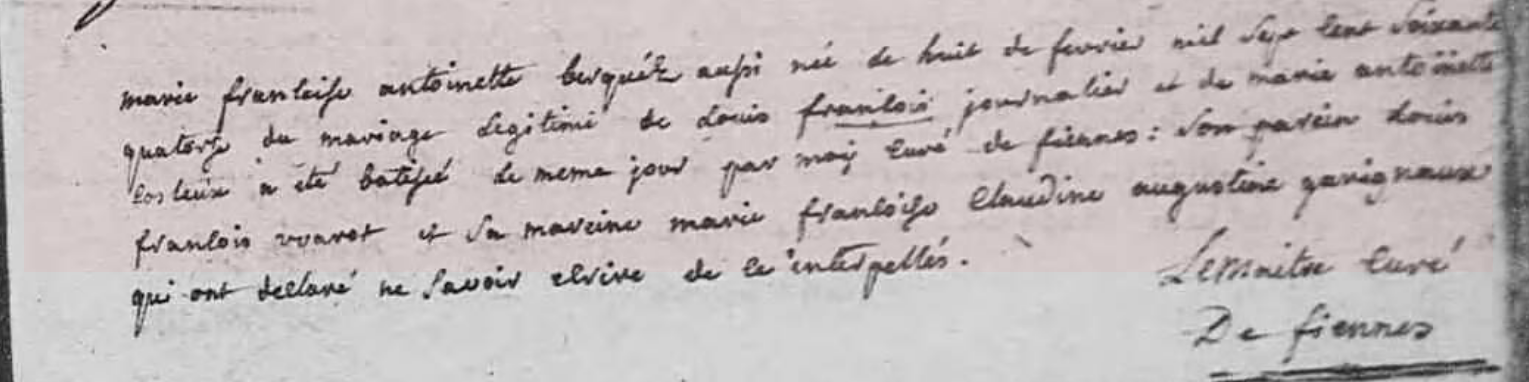 marie françoise antoinette berquéz aussi née de huit de fevrier mil sept cent soixante
quatorze du mariage legitime de Louis françois journalier et de marie antoinette
Costeux a été batisée le meme jour par moy curé de fiennes : son parein Louis
françois vvarot et sa mareine marie françoise Claudine augustine gavignaux
qui ont declaré ne savoir ecrire de ce interpellés.
Lemaitre curé
De fiennes